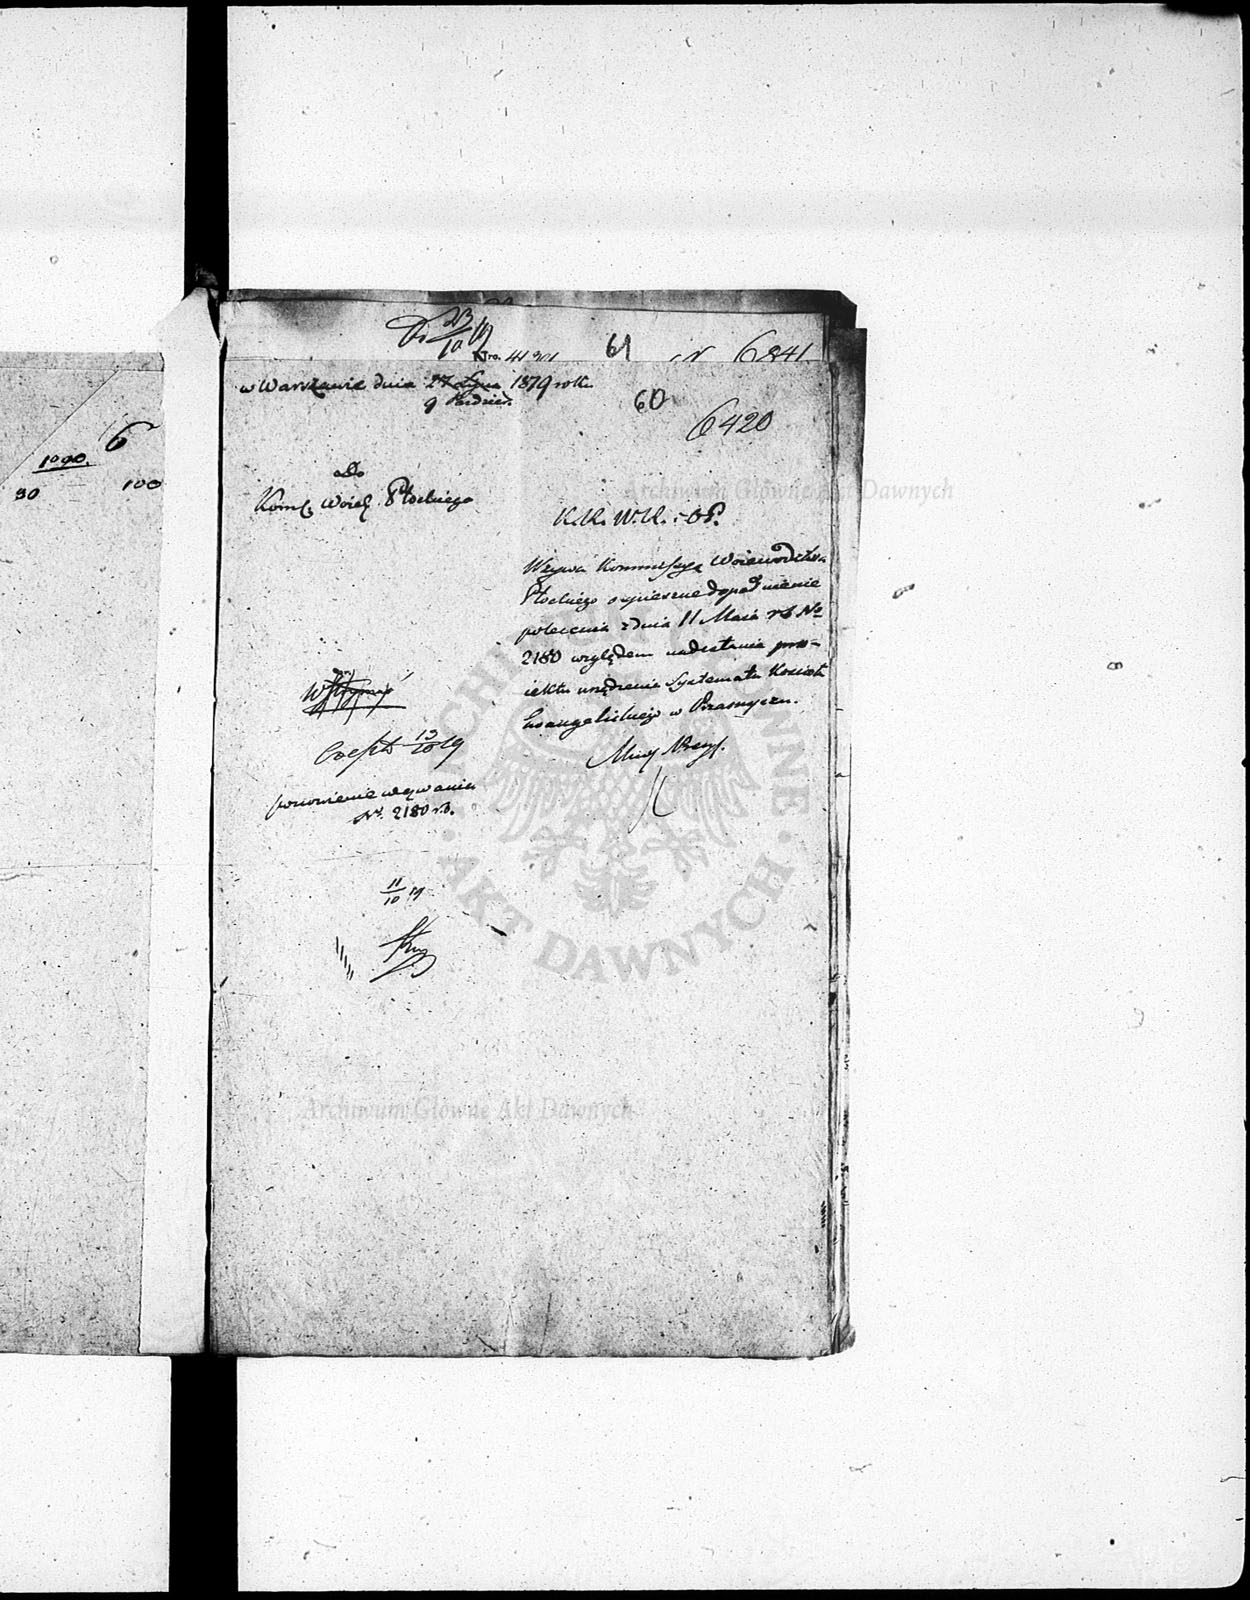 23
10 19
Nro. 4121
61
N 6841
w Warszawie dnia 27 Lipca 1819 roku
9 Paździer.
60
6420
6
1090.
90 100
Do
Kom. Woiew. Płockiego
K.R.W.R. i OP.
Wzywa Kommissyą Woiewództwa
Płockiego o spieszne dopełnienie
polecenia z dnia 11 Maia r b No
2180 względem nadesłania pro-
iektu urządzenia systematu Kościoła
Ewangelickiego w Przasnyszu.
Exp. 13/10 19
ponowienie wezwania
Nr. 2180 r.b.
11/10 19
Archiwum Główne Akt Dawnych
Archiwum Główne Akt Dawnych
ARCHIWUM GŁÓWNE
AKT DAWNYCH